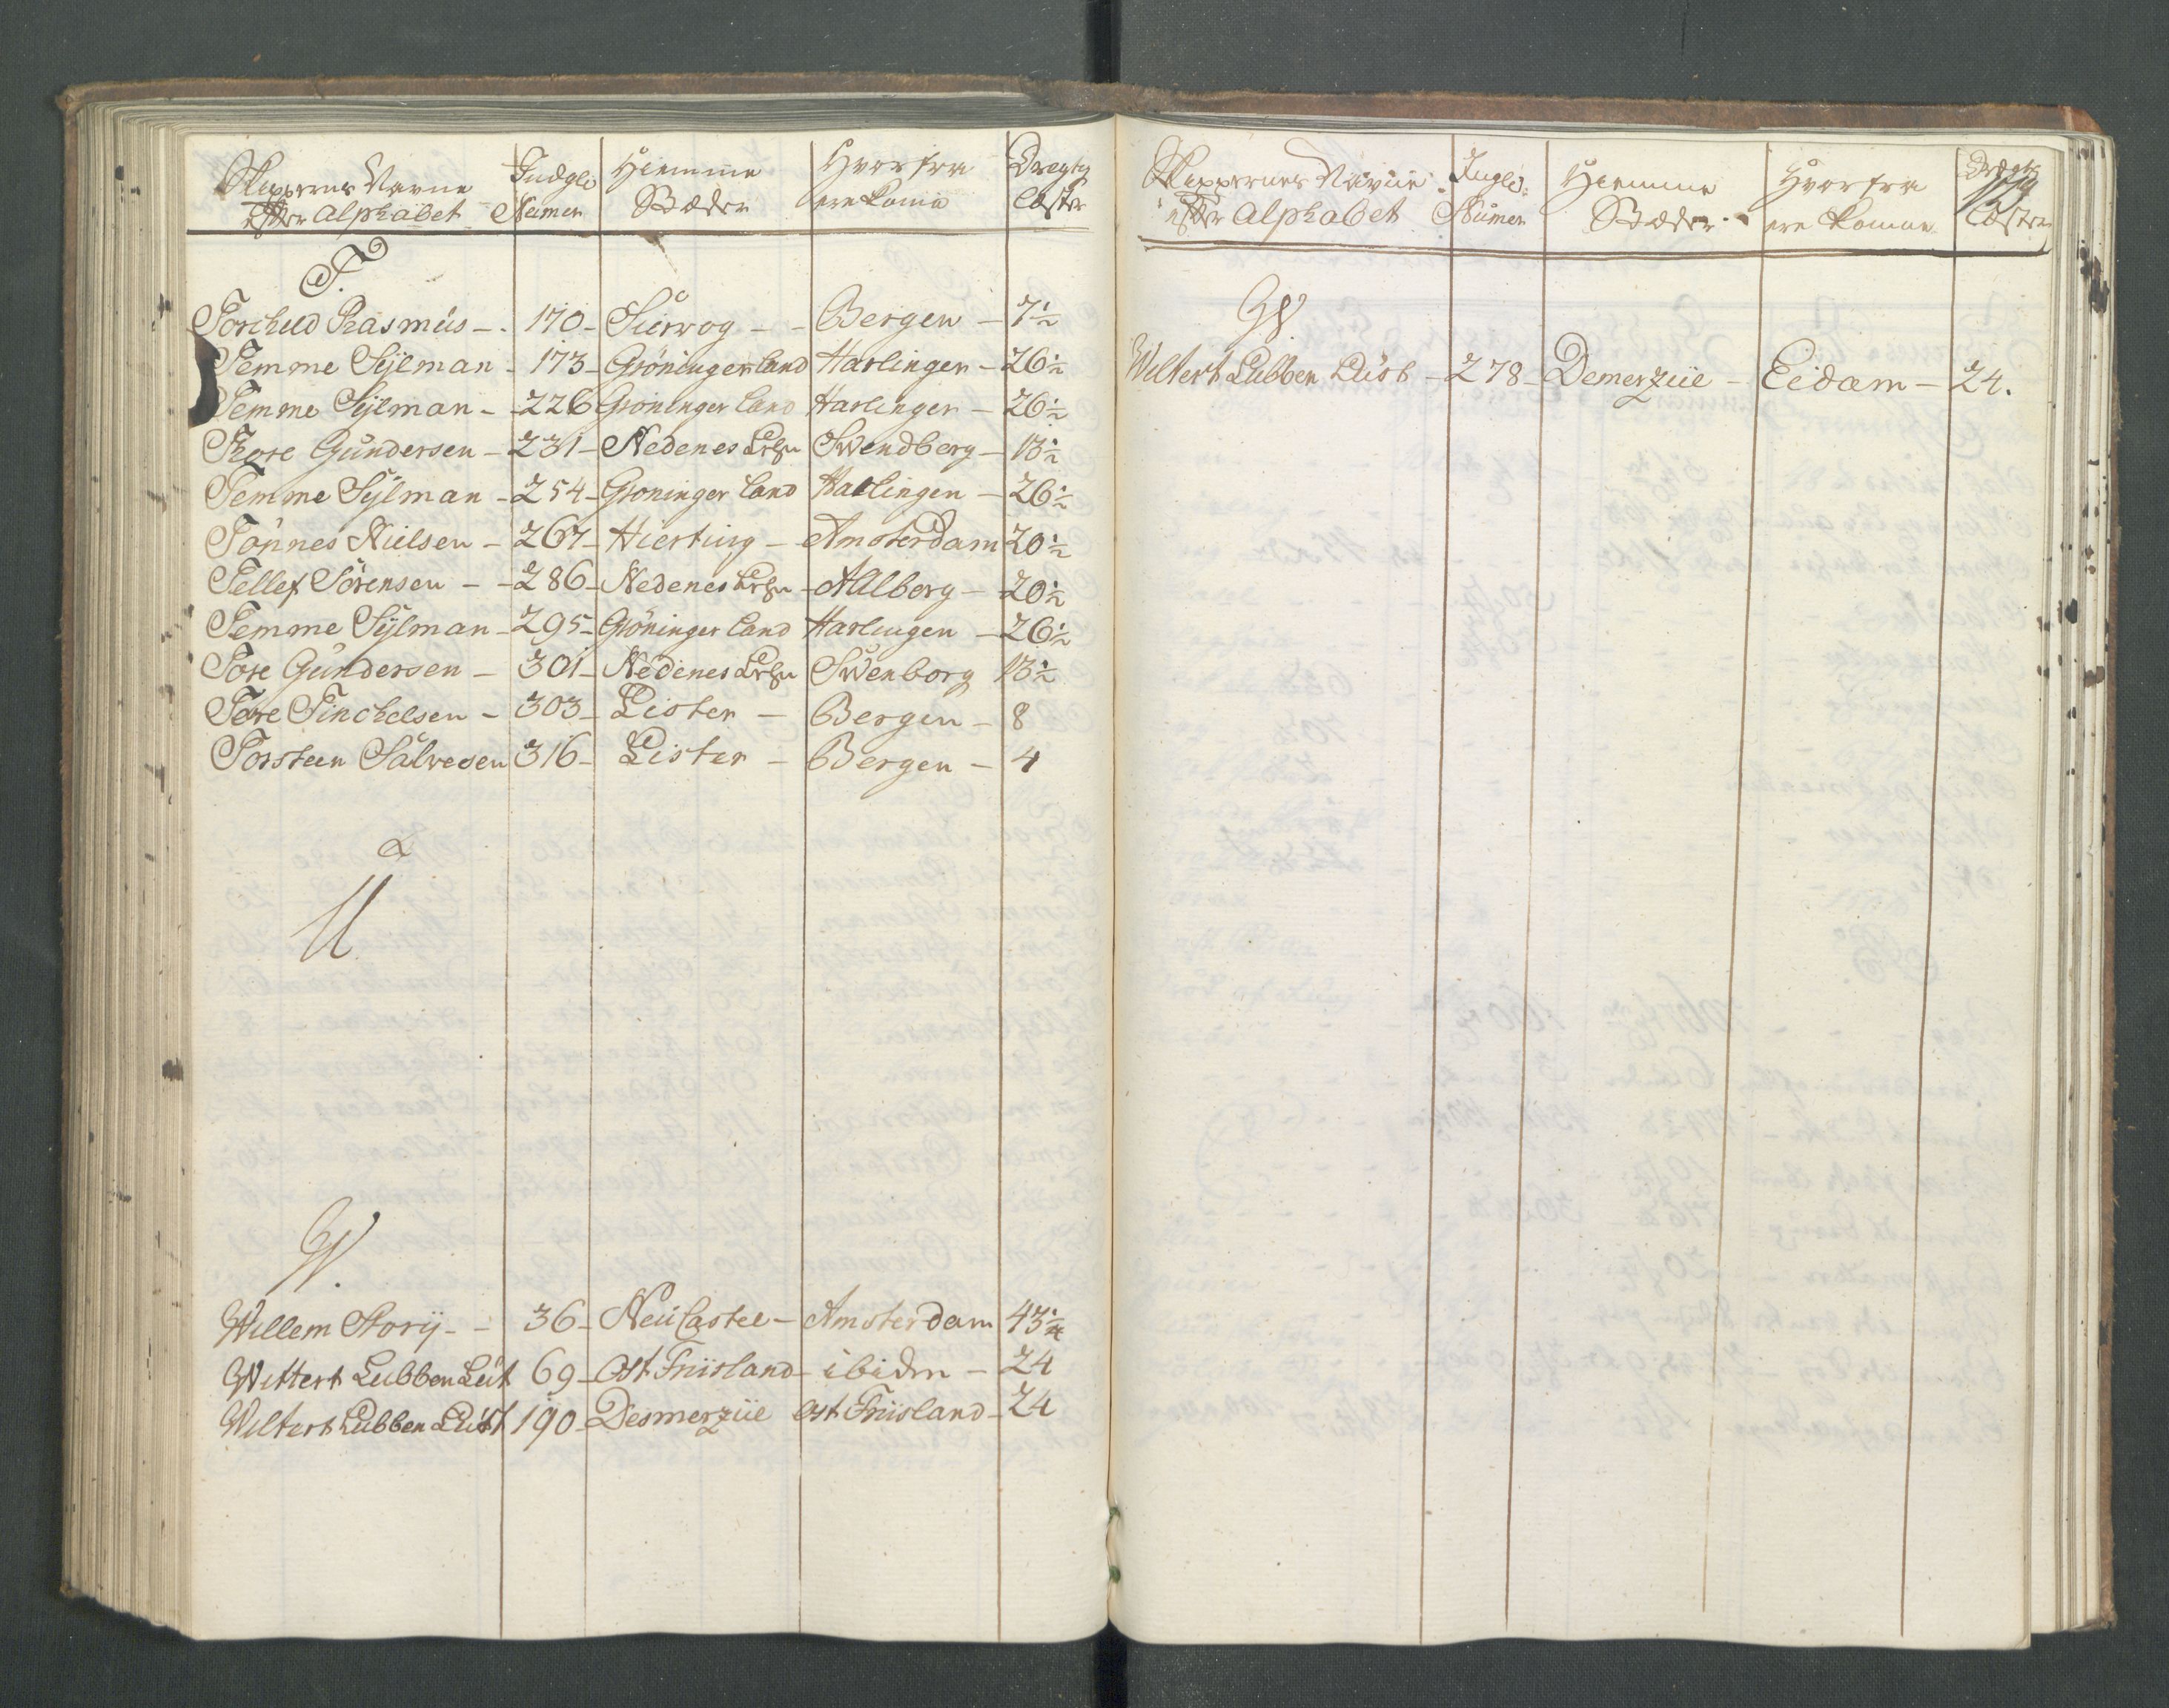 Skippernes Navne Indgl: Hiemme Hvor fra Drægtg
efter Alphabet Numer Stæder ere komne Læster
T.
Torchild Rasmus - 170 - Sierwog - Bergen - 7 1/2
Temme Sijlman - 173 - Gröningerland Harlingen - 26 1/2
Temme Sijlman - 226 Gröninger land Harlingen - 26 1/2
Thore Gundersen - 231 - Nedenes Lehn Swendberg - 13 1/2
Temme Sijlman - 254 - Groninger land Harlingen - 26 1/2
Tönnes Nielsen - 267 - Hierting - Amsterdam 20 1/2
Tellef Sörensen - 286 - Nedenes Lehn - Aalborg - 20 1/2
Temme Sijlman - 295 - Gröninger land Harlingen - 26 1/2
Tore Gundersen - 301 - Nedenes Lehn Swenborg 13 1/2
Tore Tinchelsen - 303 - Lister - Bergen - 8
Torsteen Salvesen 316 - Lister - Bergen - 4
U
W.
Willem Storij - 36 - Neu Castel - Amsterdam 43 1/4
Wittert Lubben Lüt 69 - Ost Friisland - ibidm - 24
Wiltert Lubben Lüst 190 - Desmerzüe Ost Friisland - 24
Skippernes Navne Indgl: Hiemme Hvor fra Drægtg
efter Alphabet Numer Stæder ere komne Læster
W.
Wiltert Lubben Lüst - 278 - Demerzüe - Eidam - 24.